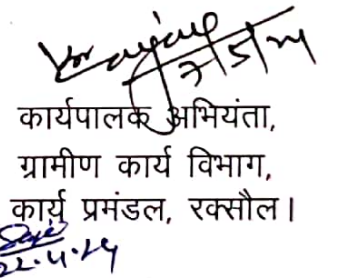 कार्यपालक अभियंता,
ग्रामीण कार्य विभाग,
कार्य प्रमंडल, रक्सौल।
22.4.24